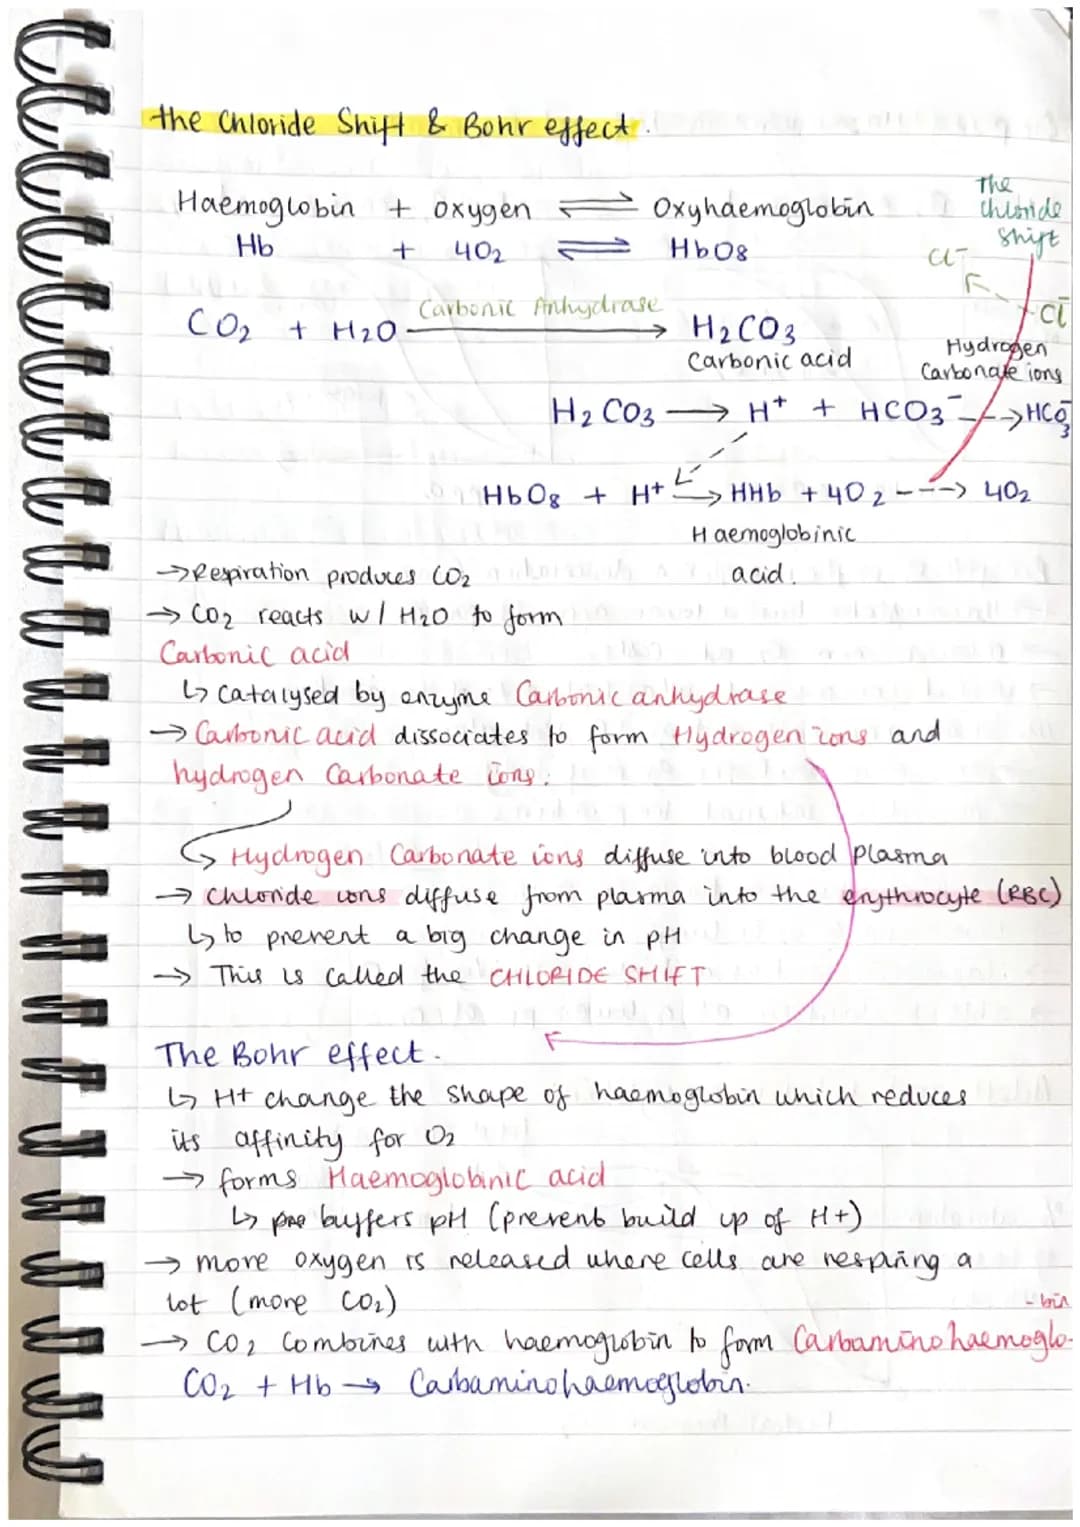 the Chloride Shift & Bohr effect.
Haemoglobin + oxygen ⇌ Oxyhaemoglobin
Hb + 4O2 ⇌ HbO8
The chloride shift
Cl-
Cl-
CO2 + H2O Carbonic Anhydrase → H2CO3
Carbonic acid
Hydrogen
Carbonate ions
H2CO3 → H+ + HCO3- --→ HCO3-
HbO8 + H+ → HHb + 4O2 ---> 4O2
Haemoglobinic
acid.
→ Respiration produces CO2
→ CO2 reacts w/ H2O to form
Carbonic acid
↳ catalysed by enzyme Carbonic anhydrase
→ Carbonic acid dissociates to form Hydrogen ions and
hydrogen Carbonate ions.
Hydrogen Carbonate ions diffuse into blood plasma
→ Chloride ions diffuse from plasma into the erythrocyte (RBC)
↳ to prevent a big change in pH
→ This is called the CHLORIDE SHIFT
The Bohr effect.
↳ H+ change the shape of haemoglobin which reduces
its affinity for O2
→ forms Haemoglobinic acid
↳ buffers pH (prevent build up of H+)
→ more oxygen is released where cells are respiring a
lot (more CO2)
→ CO2 combines with haemoglobin to form Carbaminohaemoglo-
-bin
CO2 + Hb → Carbaminohaemoglobin.